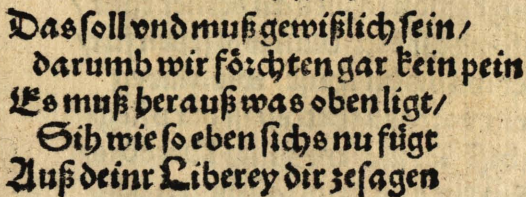 Das soll vnd muß gewißlich sein/
darumb wir förchten gar kein pein
Es muß herauß was oben ligt/
Sih wie so eben sichs nu fügt
Auß deinr Liberey dir zesagen